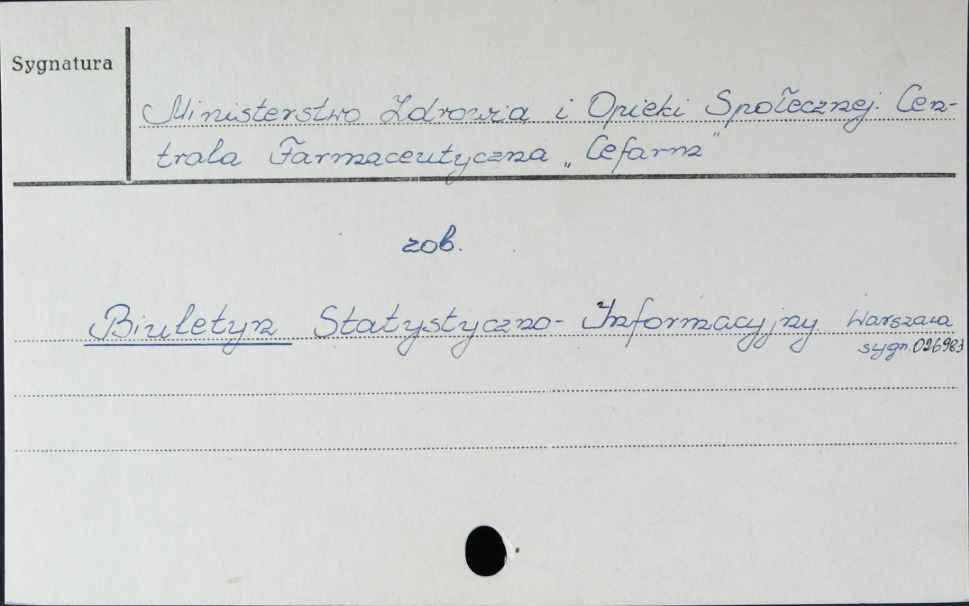 Sygnatura
Ministerstwo Zdrowia i Opieki Społecznej. Cen-
trala Farmaceutyczna „Cefarm"
zob.
Biuletyn Statystyczno-Informacyjny Warszawa
sygn. 026983